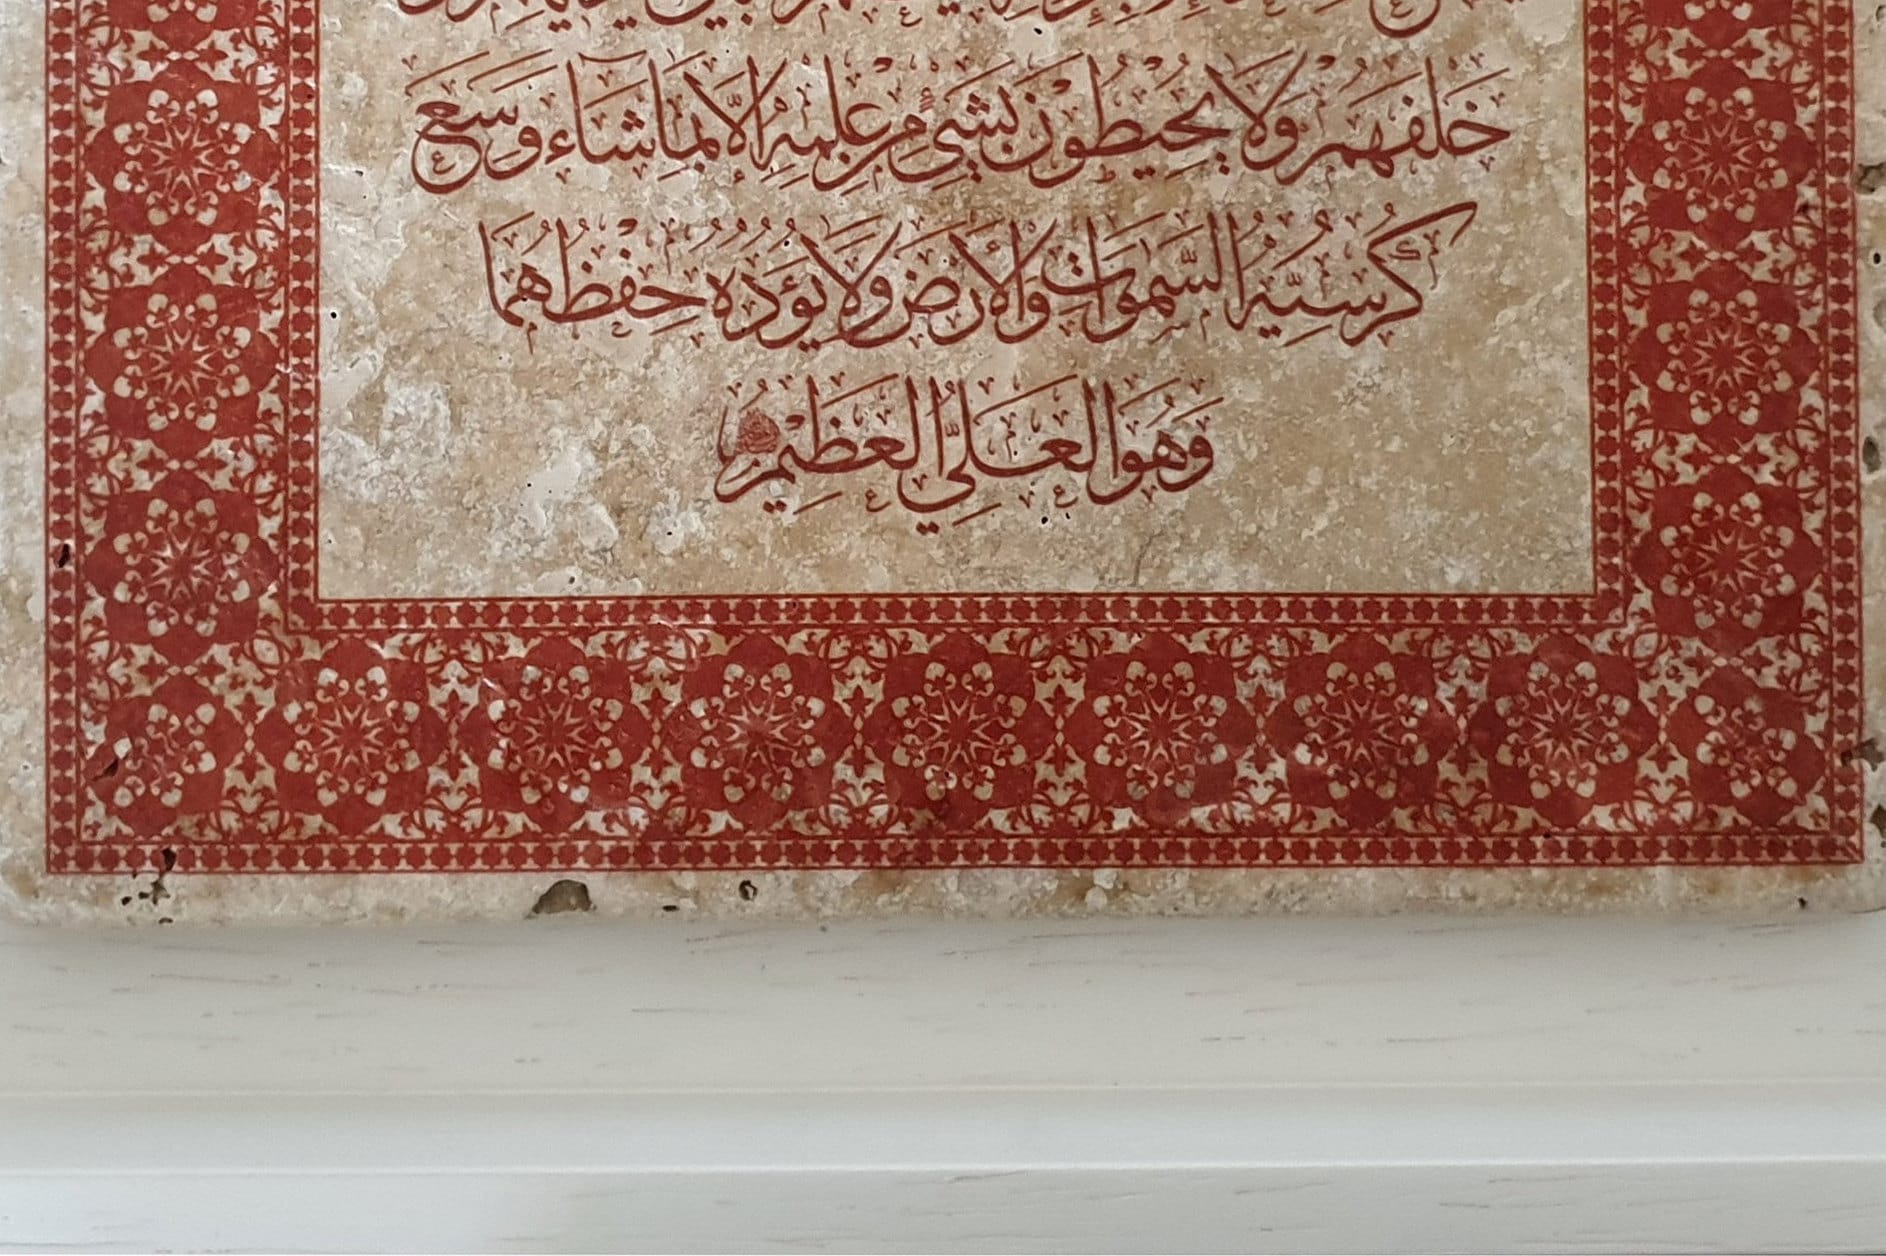 خَلْفَهُمْ وَلَا يُحِيطُونَ بِشَيْءٍ مِنْ عِلْمِهِ إِلَّا بِمَا شَاءَ وَسِعَ
كُرْسِيُّهُ السَّمٰوَاتِ وَالْأَرْضَ وَلَا يَؤُدُهُ حِفْظُهُمَا
وَهُوَ الْعَلِيُّ الْعَظِيمُ